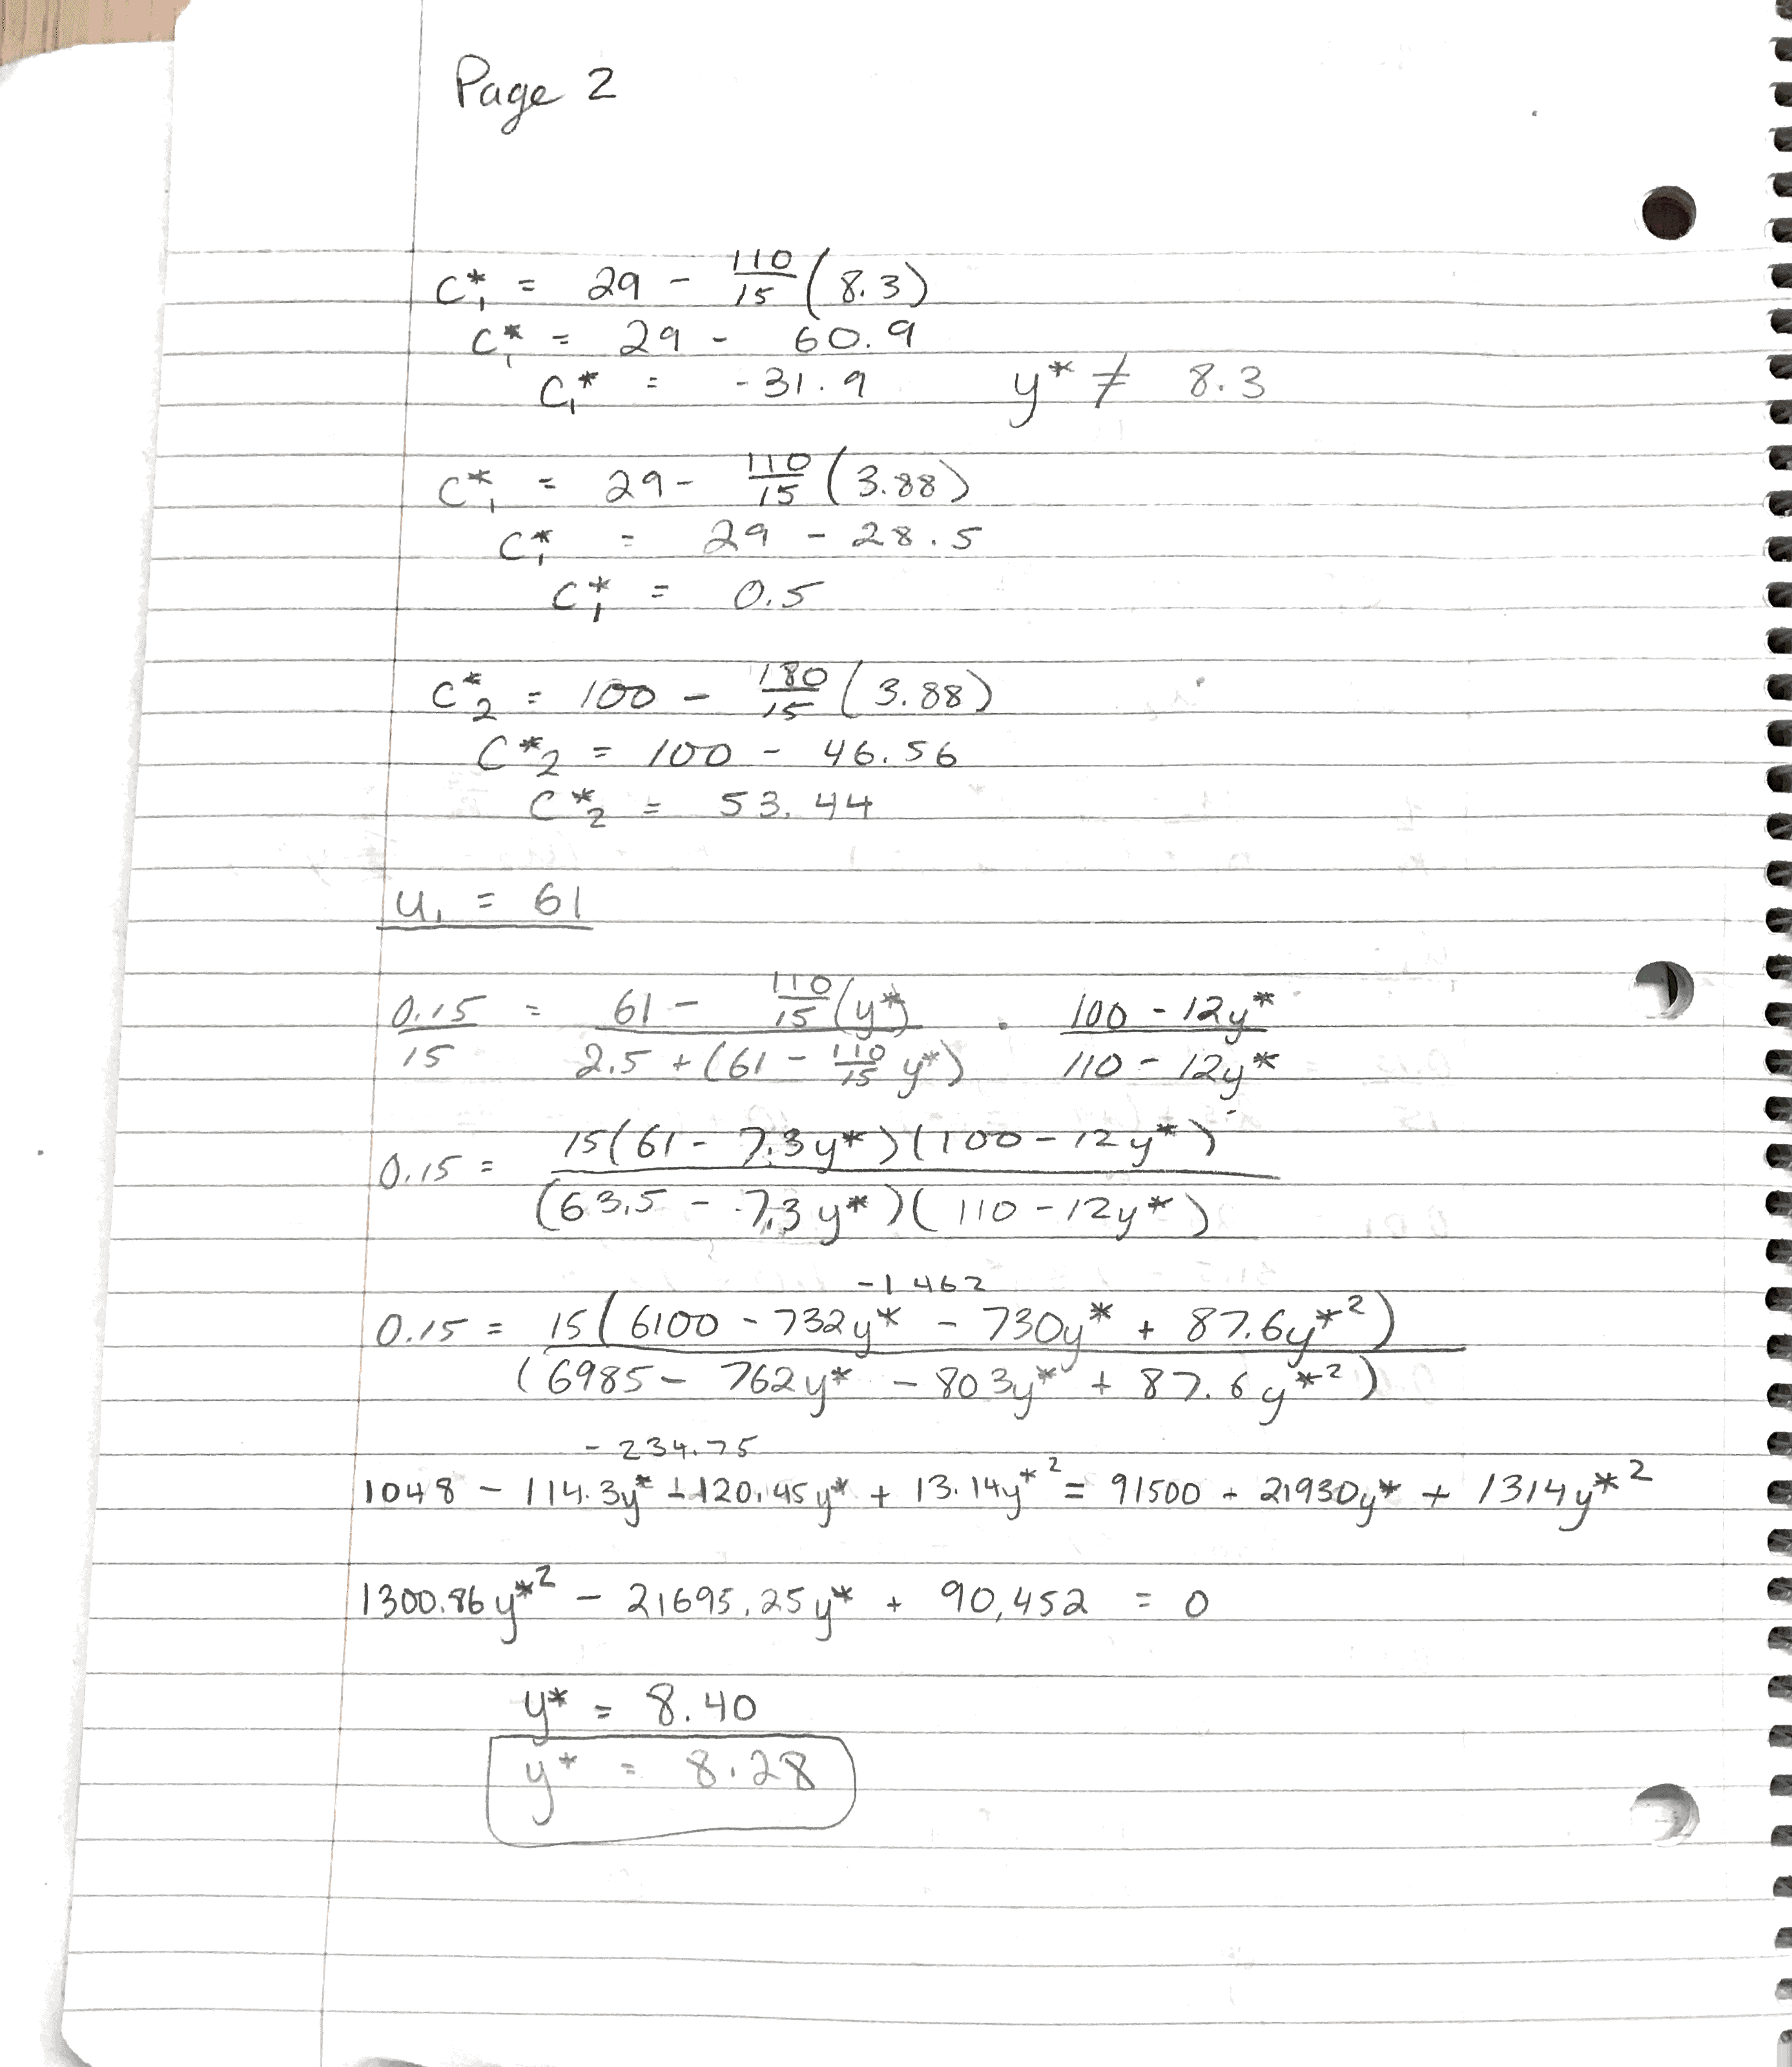 Page 2
C*₁ = 29 - 110/15 (8.3)
C*₁ = 29 - 60.9
C₁* = -31.9 y* ≠ 8.3
C*₁ = 29 - 110/15 (3.88)
C*₁ = 29 - 28.5
C*₁ = 0.5
C*₂ = 100 - 180/15 (3.88)
C*₂ = 100 - 46.56
C*₂ = 53.44
u₁ = 61
0.15/15 = (61 - 110/15 (y*))/(2.5 + (61 - 110/15 y*)) · (100 - 12y*)/(110 - 12y*)
0.15 = 15(61 - 7.3y*)(100 - 12y*)/((63.5 - 7.3y*)(110 - 12y*))
-1462
0.15 = 15(6100 - 732y* - 730y* + 87.6y*²)/(6985 - 762y* - 803y* + 87.6y*²)
-234.75
1048 - 114.3y* - 120.45y* + 13.14y*² = 91500 - 21930y* + 1314y*²
1300.86y*² - 21695.25y* + 90,452 = 0
y* = 8.40
y* = 8.28